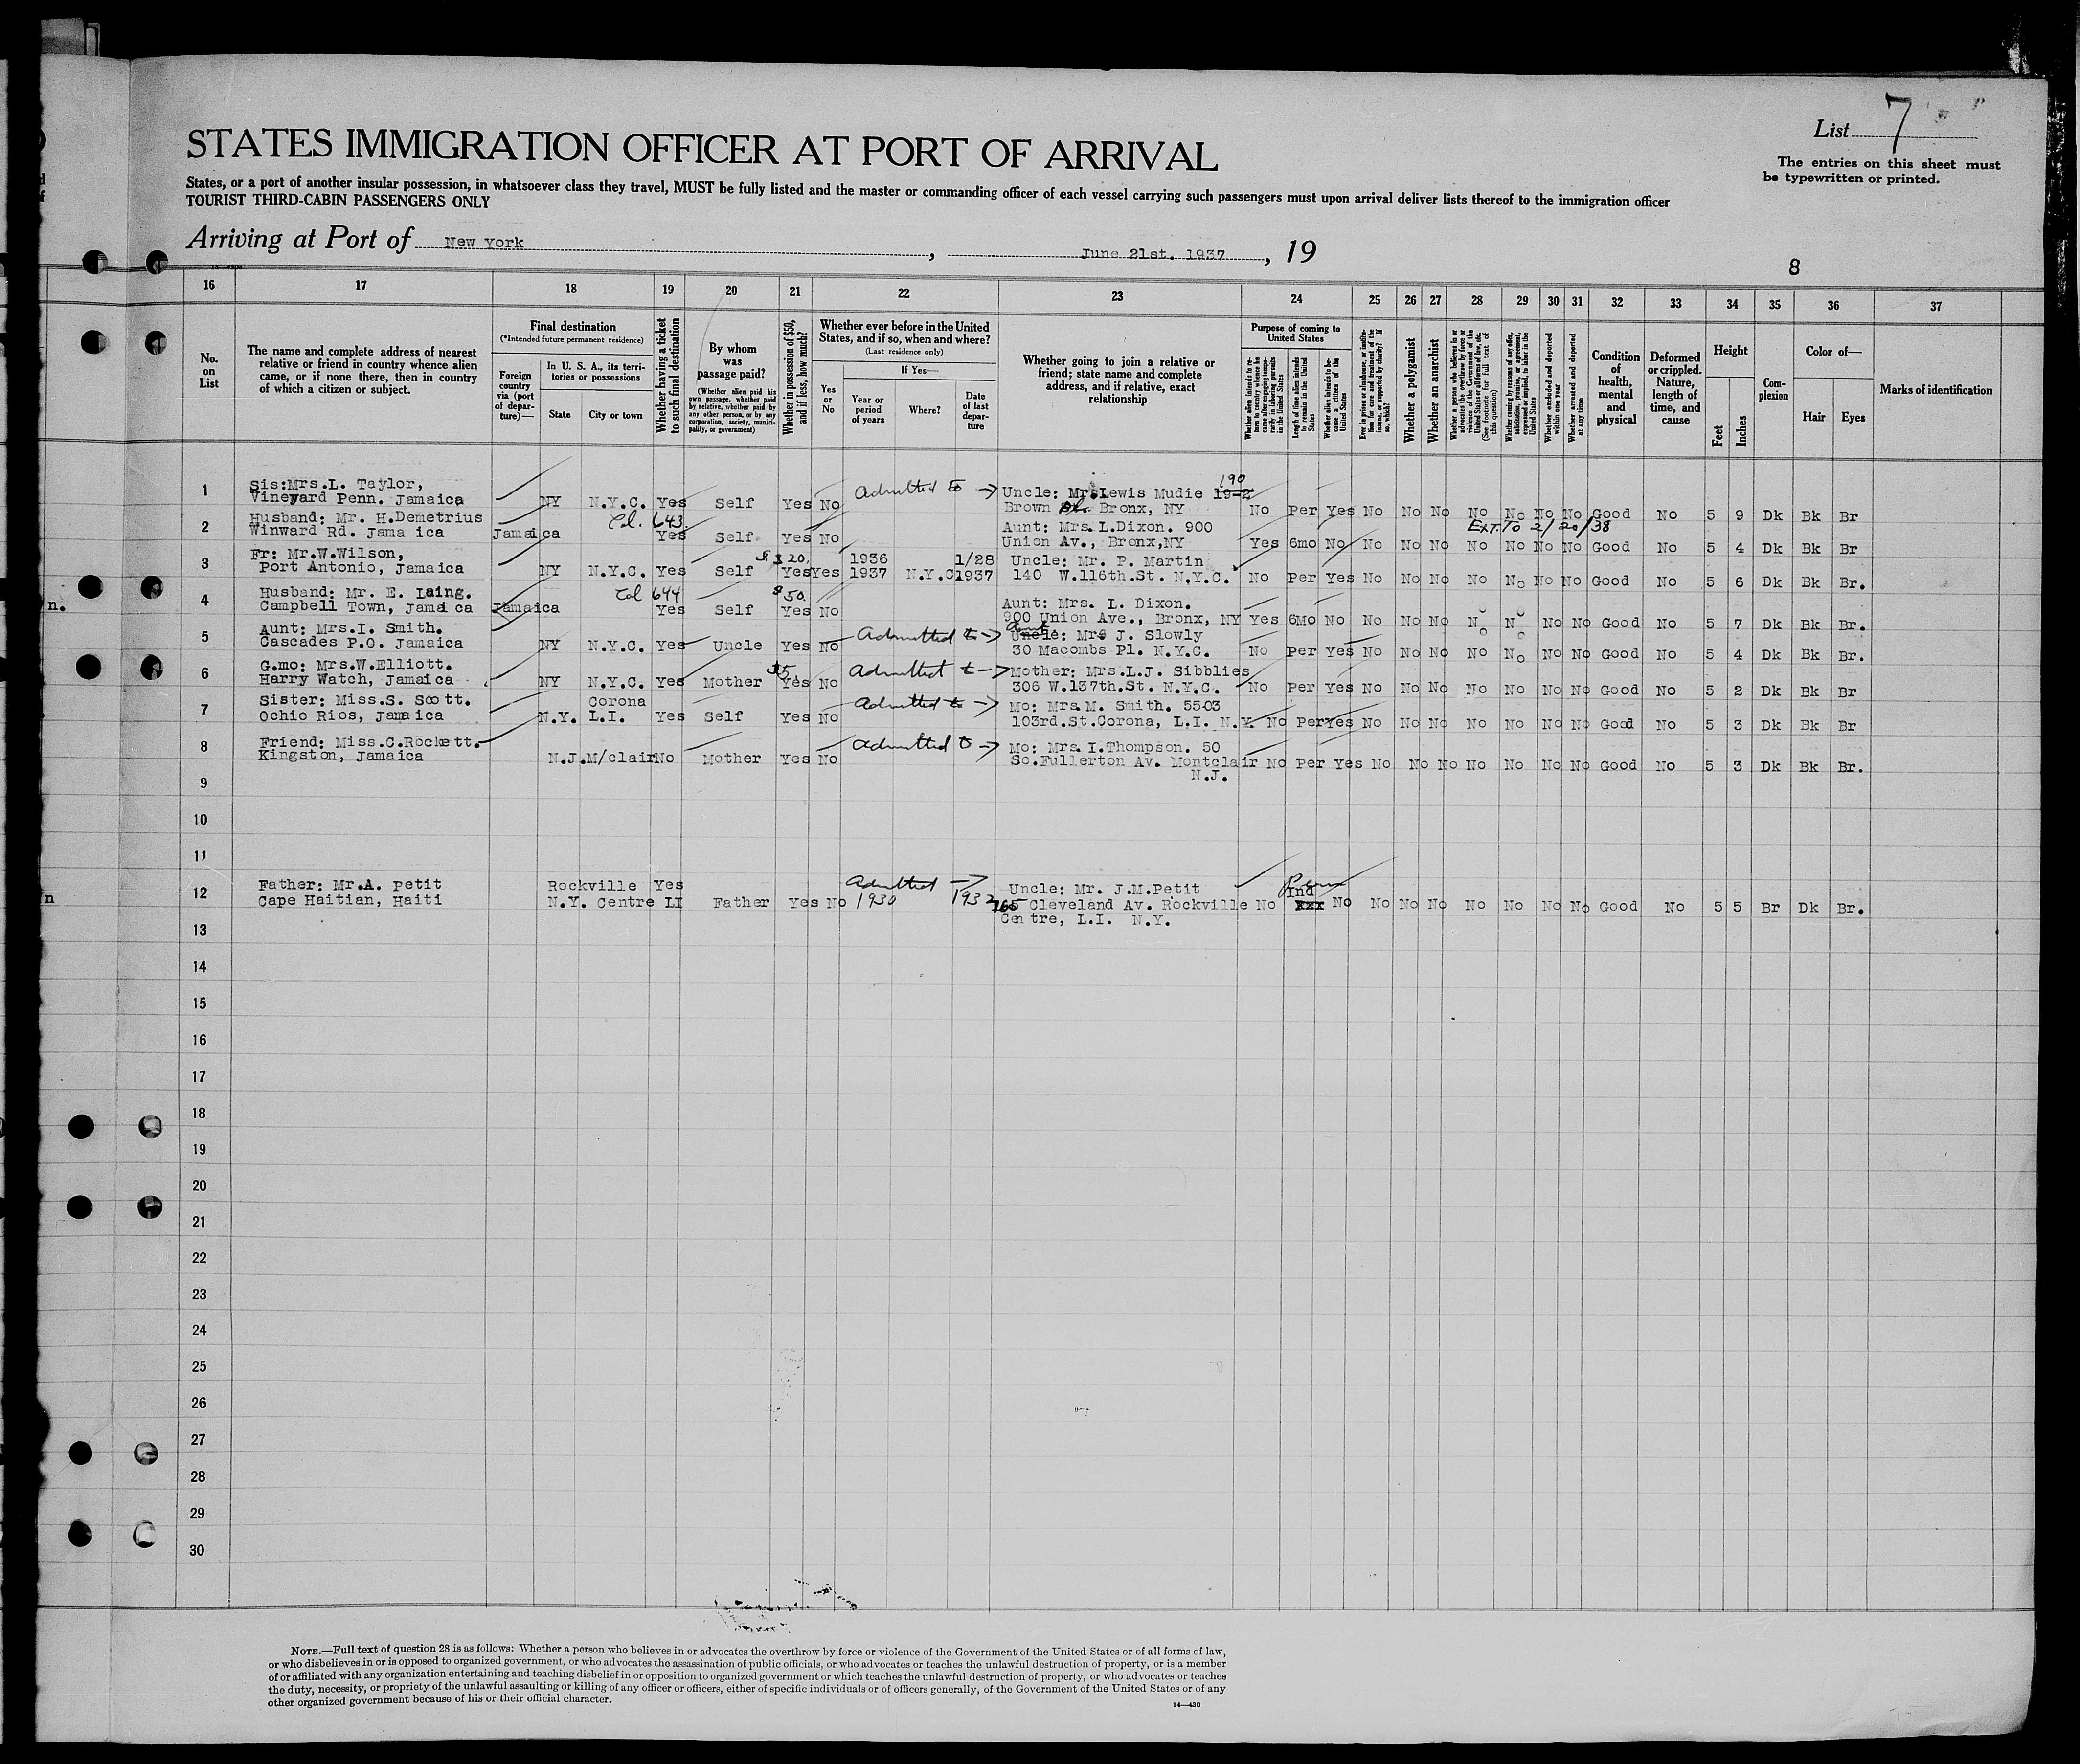 List 7
STATES IMMIGRATION OFFICER AT PORT OF ARRIVAL
The entries on this sheet must
be typewritten or printed.
States, or a port of another insular possession, in whatsoever class they travel, MUST be fully listed and the master or commanding officer of each vessel carrying such passengers must upon arrival deliver lists thereof to the immigration officer
TOURIST THIRD-CABIN PASSENGERS ONLY
Arriving at Port of New York, June 21st. 1937, 19
8
16 17 18 19 20 21 22 23 24 25 26 27 28 29 30 31 32 33 34 35 36 37
No.
on
List
The name and complete address of nearest
relative or friend in country whence alien
came, or if none there, then in country
of which a citizen or subject.
Final destination
(*Intended future permanent residence)
Foreign
country
via (port
of depar-
ture)—
In U. S. A., its terri-
tories or possessions
State
City or town
Whether having a ticket
to such final destination
By whom
was
passage paid?
(Whether alien paid his
own passage, whether paid
by relative, whether paid by
any other person, or by any
corporation, society, munici-
pality, or government)
Whether in possession of $50,
and if less, how much?
Whether ever before in the United
States, and if so, when and where?
(Last residence only)
Yes
or
No
If Yes—
Year or
period
of years
Where?
Date
of last
depar-
ture
Whether going to join a relative or
friend; state name and complete
address, and if relative, exact
relationship
Purpose of coming to
United States
Length of time alien intends
to remain in the United
States
Whether alien intends to be-
come a citizen of the
United States
Whether a polygamist
Whether an anarchist
Whether excluded and deported
within one year
Whether arrested and deported
at any time
Condition
of
health,
mental
and
physical
Deformed
or crippled.
Nature,
length of
time, and
cause
Height
Feet
Inches
Com-
plexion
Color of—
Hair
Eyes
Marks of identification
1 Sis:Mrs.L. Taylor, Admitted to → Uncle: Mr Lewis Mudie 190
Vineyard Penn. Jamaica NY N.Y.C. Yes Self Yes No Brown Pl. Bronx, NY No Per Yes No No No No No No No Good No 5 9 Dk Bk Br
2 Husband: Mr. H.Demetrius Col. 643 Aunt: Mrs. L.Dixon. 900 Ext. To 2/20/38
Winward Rd. Jama ica Jamaica Yes Self Yes No Union Av., Bronx,NY Yes 6mo No No No No No No No No Good No 5 4 Dk Bk Br
3 Fr: Mr.W.Wilson, $20 1936 1/28 Uncle: Mr. P. Martin
Port Antonio, Jamaica NY N.Y.C. Yes Self Yes Yes 1937 N.Y.C 1937 140 W.116th.St. N.Y.C. No Per Yes No No No No No No No Good No 5 6 Dk Bk Br.
4 Husband: Mr. E. Laing. Col 644 $50 Aunt: Mrs. L. Dixon.
Campbell Town, Jamaica Jamaica Yes Self Yes No 900 Union Ave., Bronx, NY Yes 6Mo No No No No No No No No Good No 5 7 Dk Bk Br.
5 Aunt: Mrs.I. Smith. Admitted to → Aunt Uncle: Mrs J. Slowly
Cascades P.O. Jamaica NY N.Y.C. Yes Uncle Yes No 30 Macombs Pl. N.Y.C. No Per Yes No No No No No No No Good No 5 4 Dk Bk Br.
6 G.mo: Mrs.W.Elliott. $5 Admitted to → Mother: Mrs.L.J. Sibblies
Harry Watch, Jamaica NY N.Y.C. Yes Mother Yes No 306 W.137th.St. N.Y.C. No Per Yes No No No No No No No Good No 5 2 Dk Bk Br
7 Sister: Miss.S. Scott. Corona Admitted to → Mo: Mrs.M. Smith. 55-03
Ochio Rios, Jamaica N.Y. L.I. Yes Self Yes No 103rd.St.Corona, L.I. N.Y. No Per Yes No No No No No No No Good No 5 3 Dk Bk Br
8 Friend: Miss.C.Rockett. Admitted to → Mo: Mrs. I.Thompson. 50
Kingston, Jamaica N.J. M/clair No Mother Yes No So.Fullerton Av. Montclair No Per Yes No No No No No No No Good No 5 3 Dk Bk Br.
N.J.
9
10
11
12 Father: Mr.A. Petit Rockville Yes Admitted → Uncle: Mr. J.M.Petit Perm Ind
n Cape Haitian, Haiti N.Y. Centre LI Father Yes No 1930 1932 165 Cleveland Av. Rockville No xxx No No No No No No No No Good No 5 5 Br Dk Br.
Centre, L.I. N.Y.
13
14
15
16
17
18
19
20
21
22
23
24
25
26
27
28
29
30
NOTE.—Full text of question 28 is as follows: Whether a person who believes in or advocates the overthrow by force or violence of the Government of the United States or of all forms of law,
or who disbelieves in or is opposed to organized government, or who advocates the assassination of public officials, or who advocates or teaches the unlawful destruction of property, or is a member
of or affiliated with any organization entertaining and teaching disbelief in or opposition to organized government or which teaches the unlawful destruction of property, or who advocates or teaches
the duty, necessity, or propriety of the unlawful assaulting or killing of any officer or officers, either of specific individuals or of officers generally, of the Government of the United States or of any
other organized government because of his or their official character.
14—430